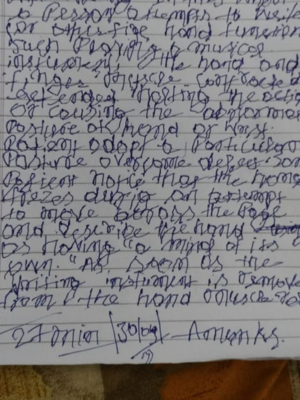 a Person attempts to write
(or otherwise hand function
such Playing a musical
instrument) the hand and
finger muscle contracted
extended halting the action
or causing the abnormal
Posture of hand or wrist.
Patient adopt a Particular
Posture overcome
Patient note that the hand
during an attempt
to move across the Page
and describe the hand
as having "a mind of its
own." As soon as the
Writing instrument is remove
from the hand muscle
27 min | 30/04